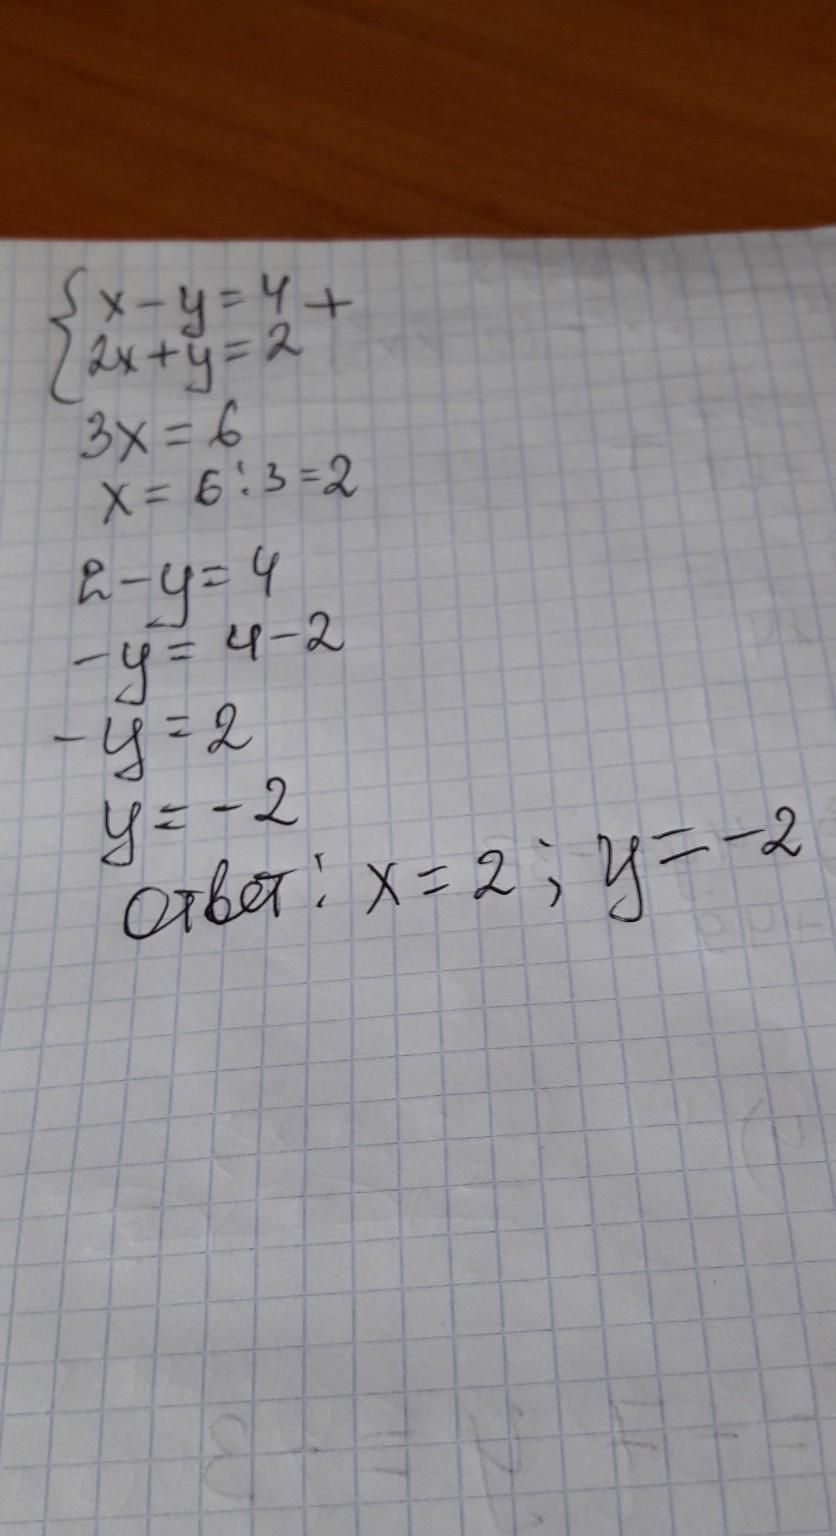 {x-y=4 +
2x+y=2
3x=6
x=6:3=2
2-y=4
-y=4-2
-y=2
y=-2
Ответ: x=2; y=-2